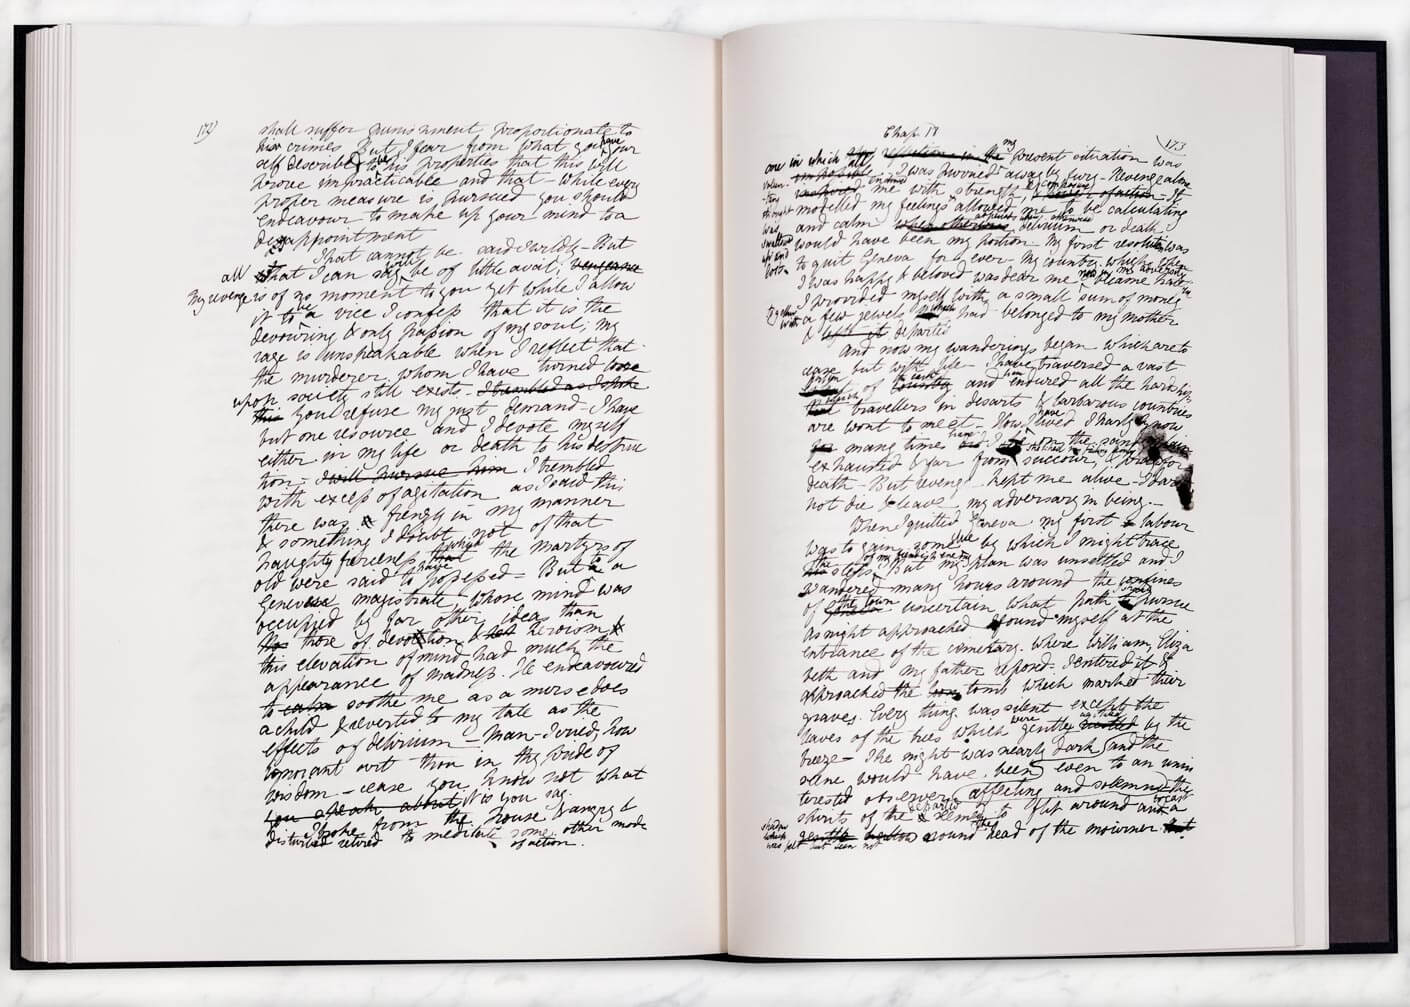 172)
shall suffer punishment proportionate to
his crimes But I fear from what you have your
self described to be his properties that this will
prove impracticable and that while every
proper measure is pursued you should
endeavour to make up your mind to a
disappointment
That cannot be said I wildly - But
all that I can say will be of little avail; vengeance
My revenge is of no moment to you yet while I allow
it to be a vice I confess that it is the
devouring & only passion of my soul; my
rage is unspeakable when I reflect that
the murderer whom I have turned loose
upon society still exists. I trembled as I spoke
this You refuse my just demand - I have
but one resource and I devote myself
either in my life or death to his destruc
tion. I will pursue him I trembled
with excess of agitation as I said this
there was a frenzy in my manner
& something I doubt not of that
haughty fierceness that which the martyrs of
old were said to have possessed = But to a
Genevese magistrate whose mind was
occupied by far other ideas than
those of devotion & heroism
this elevation of mind had much the
appearance of madness. He endeavoured
to calm soothe me as a nurse does
a child & reverted to my tale as the
effects of delirium - Man - I cried, how
ignorant art thou in thy pride of
wisdom - cease you know not what
you speak about it is you say.
I broke from the house & angry &
disturbed retired to meditate some other mode
of action.
Chap. 17
173
one in which all reflection in the my present situation was
volun- I was hurried away by fury - Revenge alone
tary endued me with strength & composure it
thought modelled my feelings & allowed me to be calculating
was and calm when otherwise delirium or death
swallowed would have been my portion. My first resolution was
up and to quit Geneva for ever - My country which when
lost. I was happy & beloved was dear me now in my adversity became hate
I provided myself with a small sum of money
together with a few jewels which had belonged to my mother
& left it departed
And now my wanderings began which are to
cease but with life - I have traversed a vast
portion of the earth country and have endured all the hardships
which travellers in desarts & barbarous countries
are wont to meet - How I have lived I hardly know
many times have I
exhausted & far from succour, &
death - But revenge kept me alive - I dare
not die & leave my adversary in being. -
When I quitted Geneva my first labour
was to gain some clue by which I might trace
the steps of my fiendish enemy. But my plan was unsettled and I
wandered many hours around the confines
of the town uncertain what path I should pursue
As night approached I found myself at the
entrance of the cemetary where William, Eliza
beth and my father reposed - I entered it &
approached the tomb which marked their
graves. Every thing was silent except the
leaves of the trees which were gently agitated by the
breeze - The night was nearly dark and the
scene would have been even to an unin
terested observer affecting and solemn the
spirits of the departed seemed to flit around and to cast a
shadow which was felt but seen not around the head of the mourner